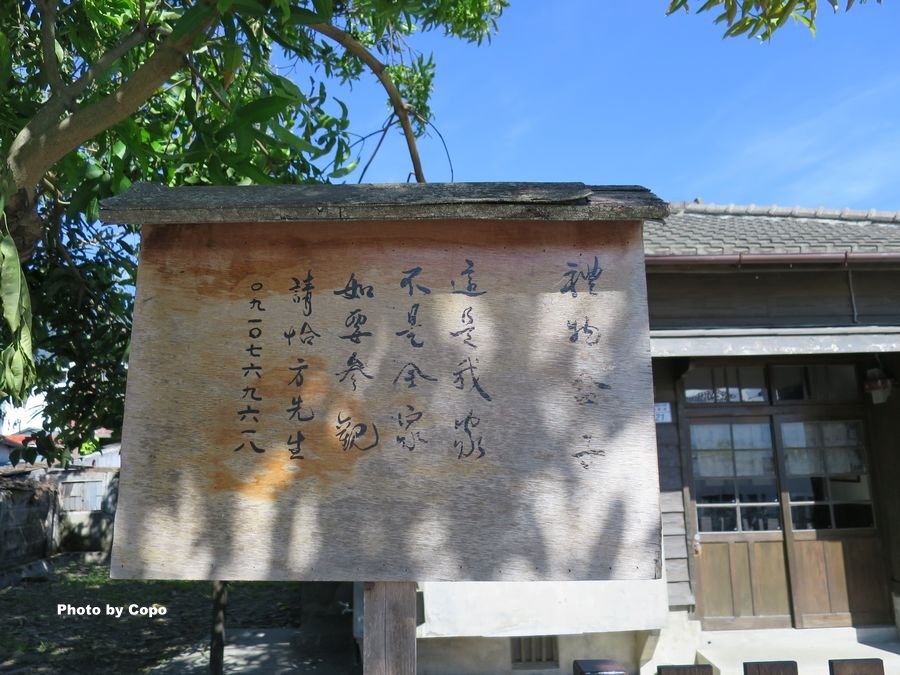 禮物盒子
這是我家
不是全家
如要參觀
請恰方先生
○九一○七六九六一八
Photo by Copo